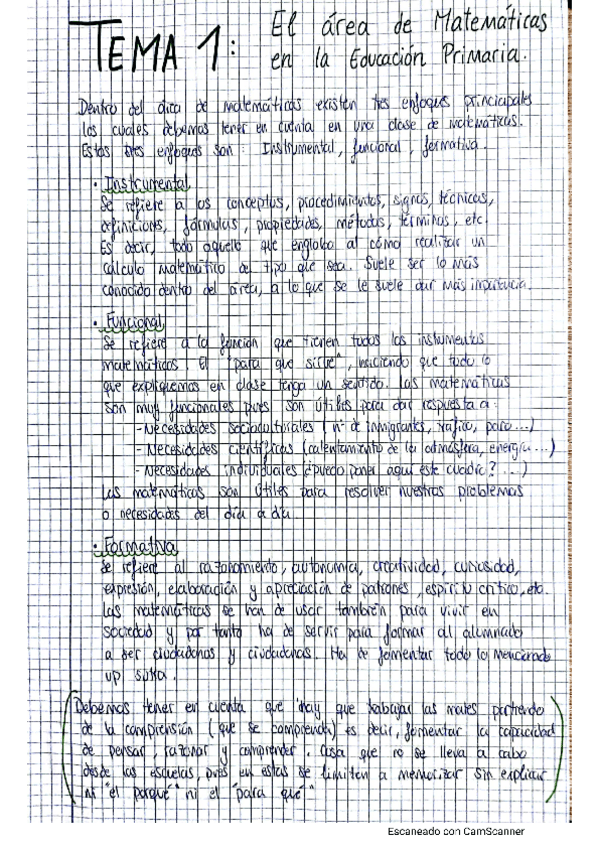 TEMA 1: El área de Matemáticas
en la Educación Primaria.
Dentro del área de matemáticas existen tres enfoques principales
los cuales debemos tener en cuenta en una clase de matemáticas.
Estos tres enfoques son: Instrumental, funcional, formativa.
• Instrumental
Se refiere a los conceptos, procedimientos, signos, técnicas,
definiciones, fórmulas, propiedades, métodos, términos, etc.
Es decir, todo aquello que engloba al cómo realizar un
cálculo matemático de tipo que sea. Suele ser lo más
conocido dentro del área, a lo que se le suele dar más importancia.
• Funcional
Se refiere a la función que tienen todos los instrumentos
matemáticos. El "para que sirve", haciendo que todo lo
que expliquemos en clase tenga un sentido. Las matemáticas
son muy funcionales pues son útiles para dar respuesta a:
- Necesidades socioculturales (nº de inmigrantes, tráfico, paro...)
- Necesidades científicas (calentamiento de la atmósfera, energía...)
- Necesidades individuales (¿puedo poner aquí este cuadro? ...)
Las matemáticas son útiles para resolver nuestros problemas
o necesidades del día a día
• Formativa
Se refiere al razonamiento, autonomía, creatividad, curiosidad,
expresión, elaboración y apreciación de patrones, espíritu crítico, etc.
Las matemáticas se han de usar también para vivir en
sociedad y por tanto ha de servir para formar al alumnado
a ser ciudadanos y ciudadanas. Ha de fomentar todo lo mencionado
up supra.
(Debemos tener en cuenta que hay que trabajar las mates partiendo
de la comprensión (que se comprenda) es decir, fomentar la capacidad
de pensar, razonar y comprender. Cosa que no se lleva a cabo
desde las escuelas, pues en estas se limitan a memorizar sin explicar
ni "el porqué" ni el "para qué")
Escaneado con CamScanner